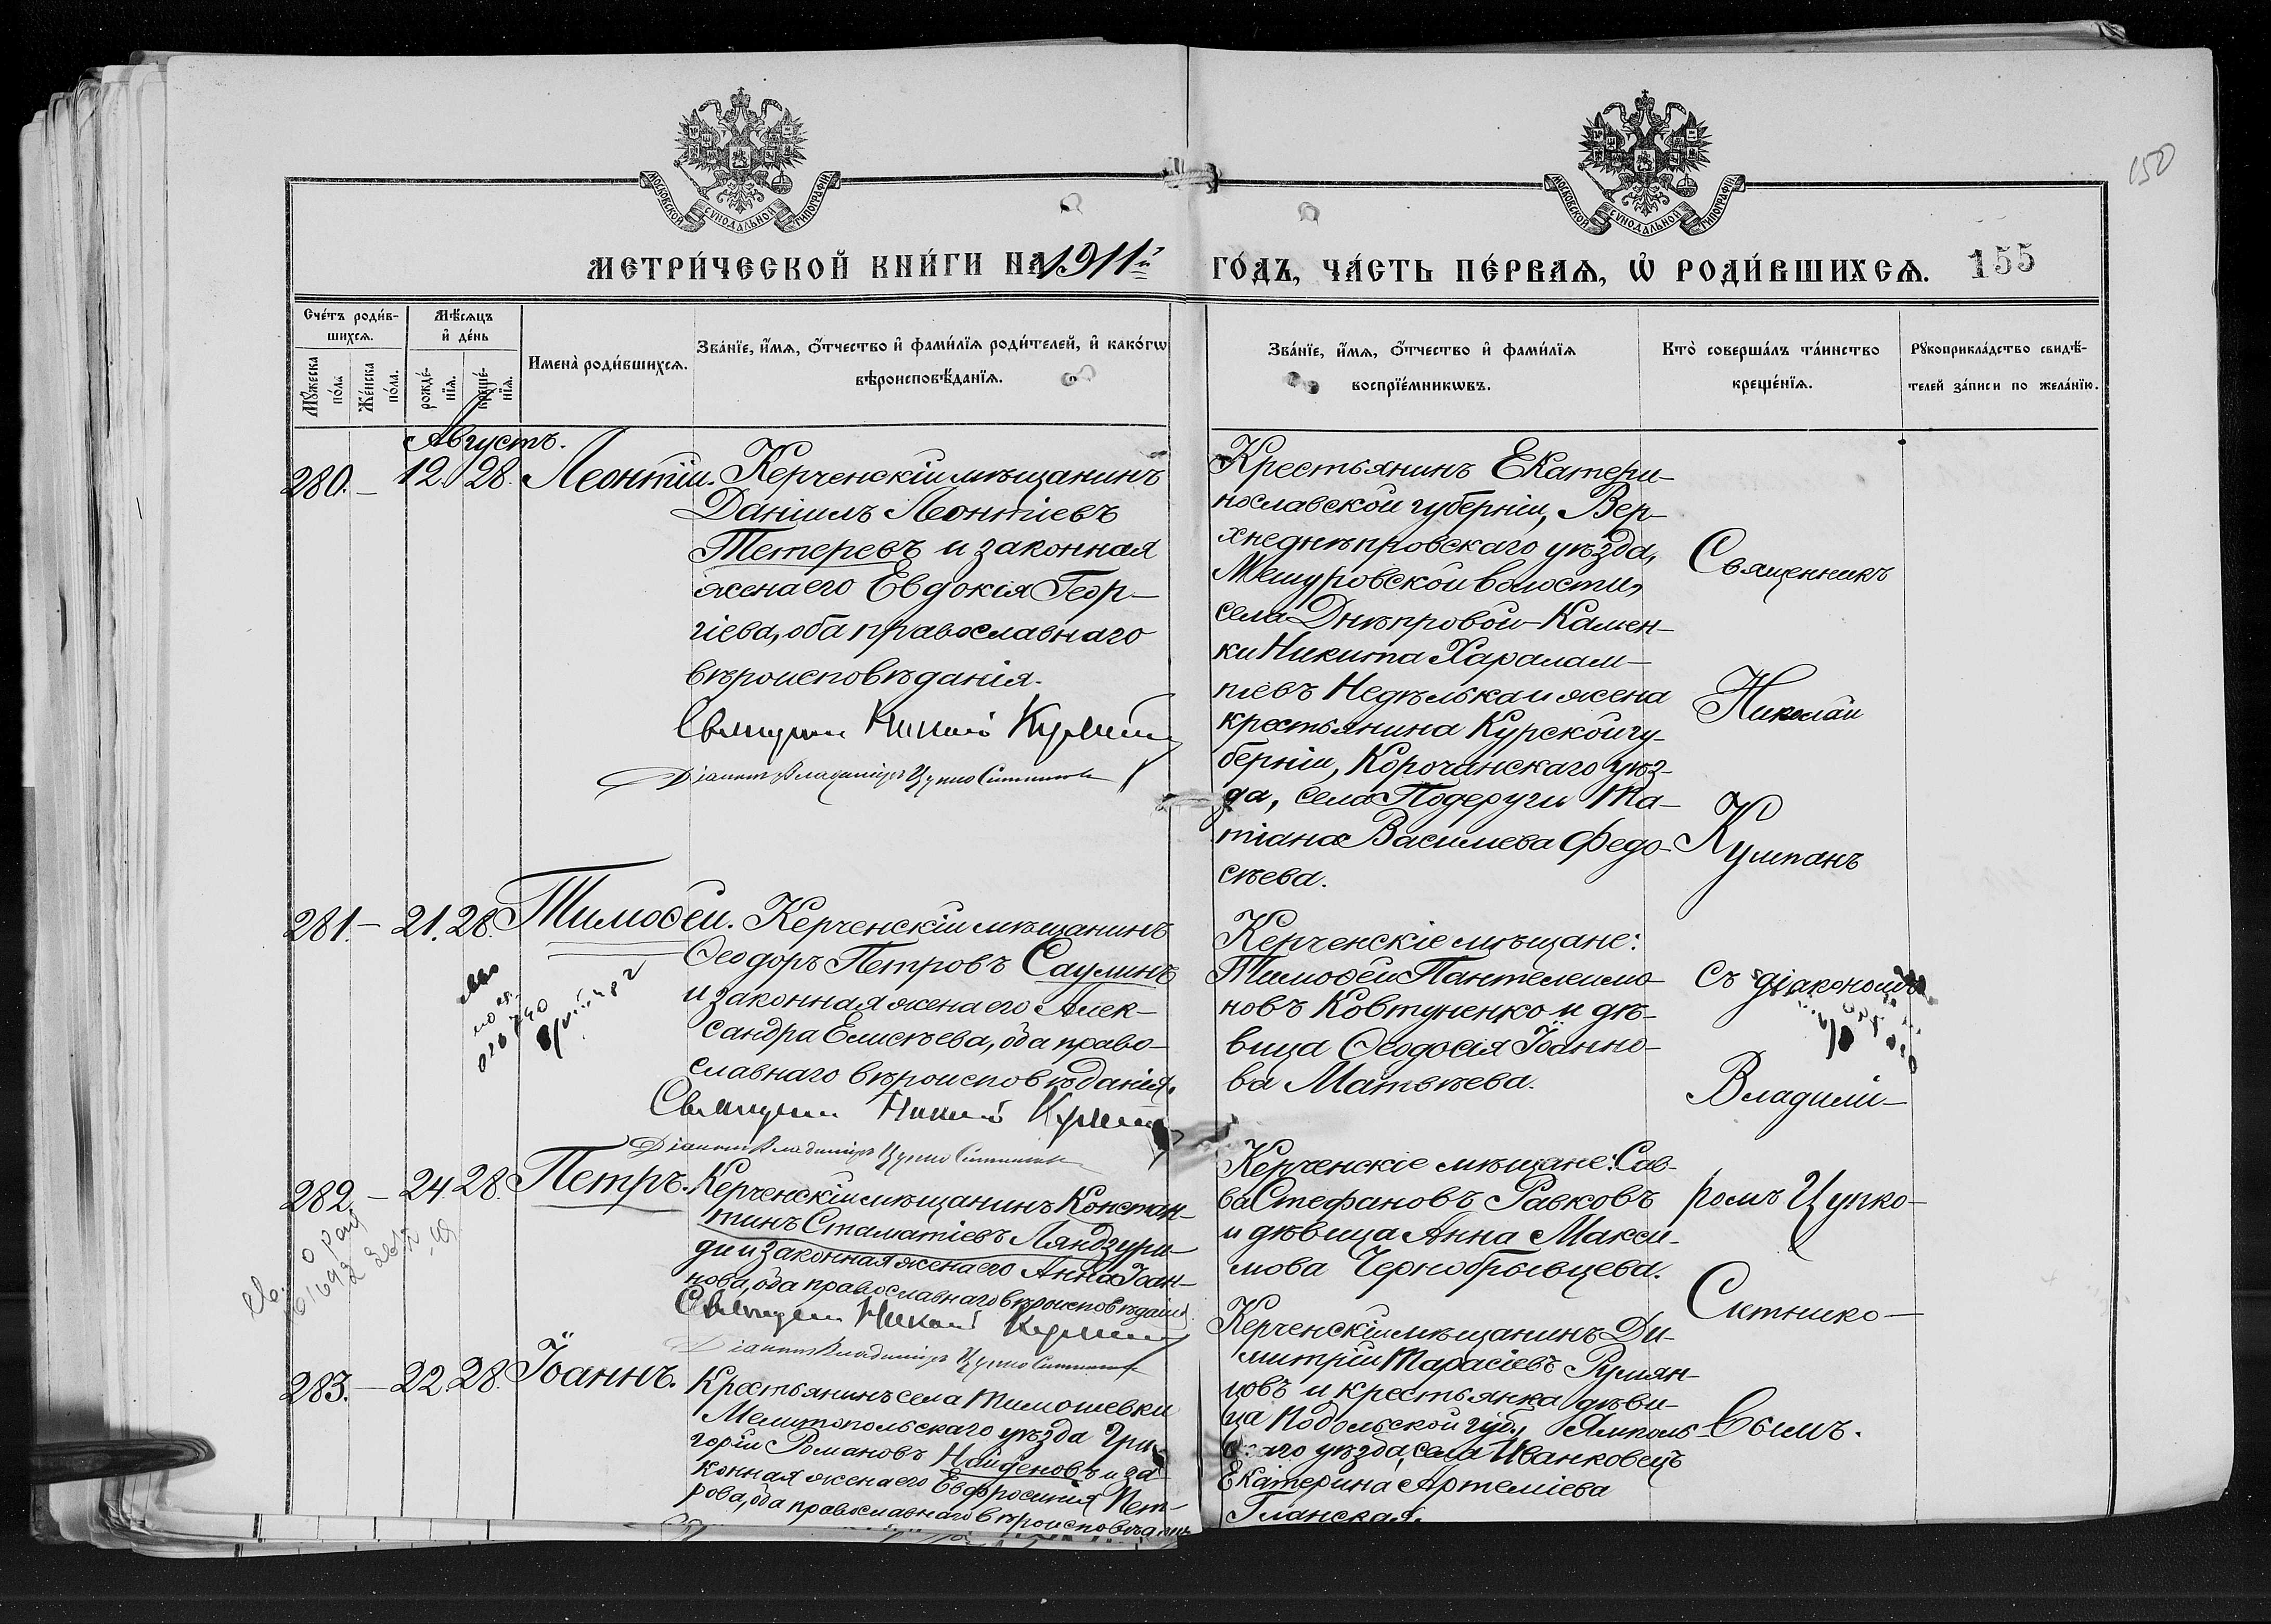 150
МОСКОВСКОЙ СѴНОДАЛЬНОЙ ТИПОГРАФІИ
МОСКОВСКОЙ СѴНОДАЛЬНОЙ ТИПОГРАФІИ
МЕТРИ́ЧЕСКОЙ КНИ́ГИ НА 1911й ГО́ДЪ, ЧА́СТЬ ПЕ́РВАѦ, Ѡ҆ РОДИ́ВШИХСѦ. 155
Сче́тъ роди́в-
шихсѧ.
Мꙋ́жеска по́ла
Же́нска по́ла.
Мѣ́сѧцъ
и҆ де́нь
рожде́-
нїѧ.
креще́-
нїѧ.
Имена̀ роди́вшихсѧ.
Зва́нїе, и҆́мѧ, ѻ҆́тчество и҆ фами́лїѧ роди́телей, и҆ како́гѡ
вѣроисповѣ́данїѧ.
Зва́нїе, и҆́мѧ, ѻ҆́тчество и҆ фами́лїѧ
воспрїе́мникѡвъ.
Кто̀ соверша́лъ та́инство
креще́нїѧ.
Рꙋкоприкла́дство свидѣ́-
телей за́писи по жела́нїю.
Августъ.
280. – 12. 28. Леонтій. Керченскій мѣщанинъ
Даніилъ Леонтіевъ
Тетеревъ и законная
жена его Евдокія Геор-
гіева, оба православнаго
вѣроисповѣданія.
Священникъ Николай
Діаконъ Владиміръ Цупко Ситников
Крестьянинъ Екатери-
нославской губерніи, Вер-
хнеднѣпровскаго уѣзда,
Мешуровской волости,
села Днѣпровой-Камен-
ки Никита Харалам-
піевъ Недѣлька и жена
крестьянина Курской гу-
берніи, Корочанскаго уѣз-
да, села Подеруги Та-
тіана Василиева Федо-
сѣева.
Священникъ
Николай
Кулпанъ
281. – 21. 28. Тимоѳей. Керченскій мѣщанинъ
Ѳеодоръ Петровъ Саулинъ
и законная жена его Алек-
сандра Елисѣева, оба право-
славнаго вѣроисповѣданія.
Священникъ Николай
Діаконъ Владиміръ Цупко Ситников
Керченскіе мѣщане:
Тимоѳей Пантелеимо-
новъ Ковтуненко и дѣ-
вица Ѳеодосія Іоанно-
ва Матвѣева.
Съ діакономъ
Владимі-
282. – 24. 28. Петръ. Керченскій мѣщанинъ Констан-
тинъ Стаматіевъ Ляндзури-
ди и законная жена его Анна Іоан-
нова, оба православнаго вѣроисповѣданія
Священникъ Николай
Діаконъ Владиміръ Цупко Ситников
Керченскіе мѣщане: Сав-
ва Стефановъ Равковъ
и дѣвица Анна Макси-
мова Чернобрывцева.
ромъ Цупко-
Ситнико-
283. – 22. 28. Іоаннъ. Крестьянинъ села Тимошевки
Мелитопольскаго уѣзда Гри-
горій Романовъ Найденовъ и за-
конная жена его Евфросинія Пет-
рова, оба православнаго вѣроисповѣданія
Керченскій мѣщанинъ Ди-
митрій Тарасіевъ Румян-
цовъ и крестьянка дѣви-
ца Подольской губ., Ямполь-
скаго уѣзда, села Иванковецъ
Екатерина Артеміева
Гланская.
вымъ.